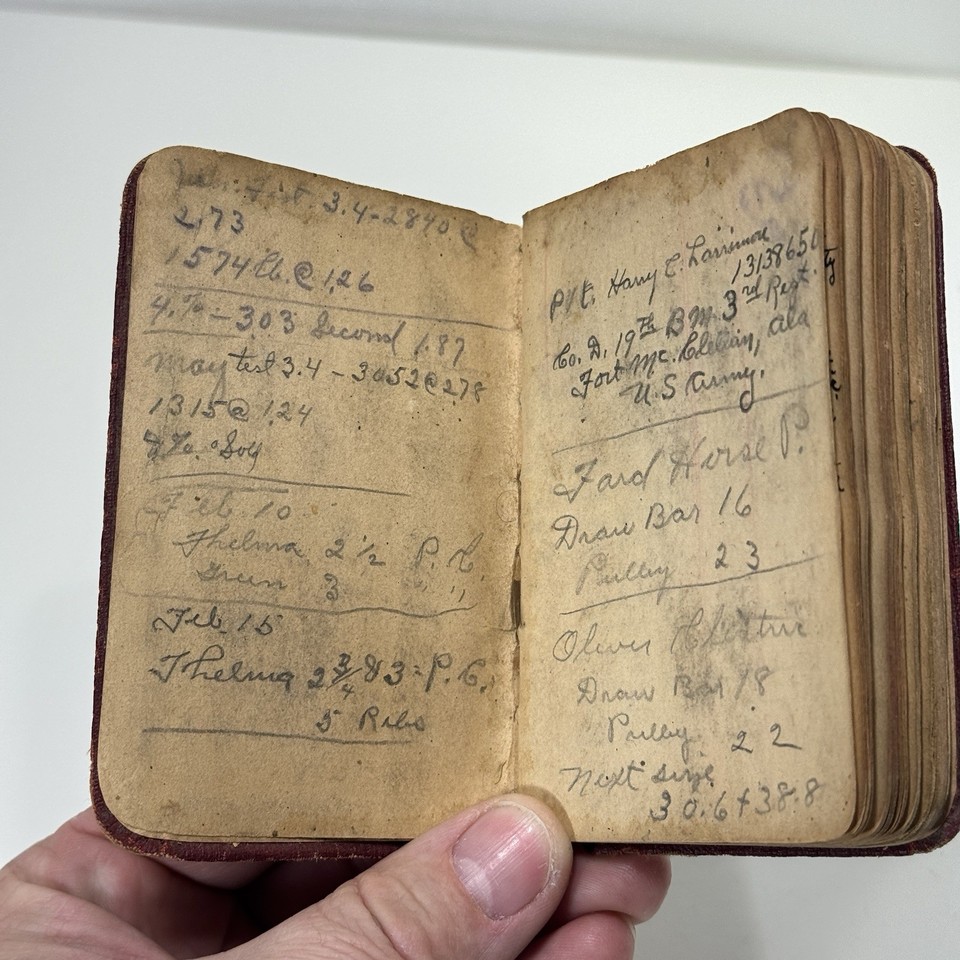 test 3.4 - 2840 @
2,73
1574 lb. @ 1,26
4.% - 303 Second 1.87
may test 3.4 - 3052 @ 278
1315 @ 1,24
4%
Feb 10
Thelma 2 1/2 P. C.
3 " "
Feb. 15
Thelma 2 3/4 & 3 = P. C.
5 Ribs
Pvt. Harry C. Larrimore
13138650
Co. D. 19th BN. 3rd Regt.
Fort Mc. Clellan, Ala
U.S Army.
Ford Horse P.
Draw Bar 16
Pulley 23
Oliver
Draw Bar 18
Pulley 22
Next size
30.6 + 38.8